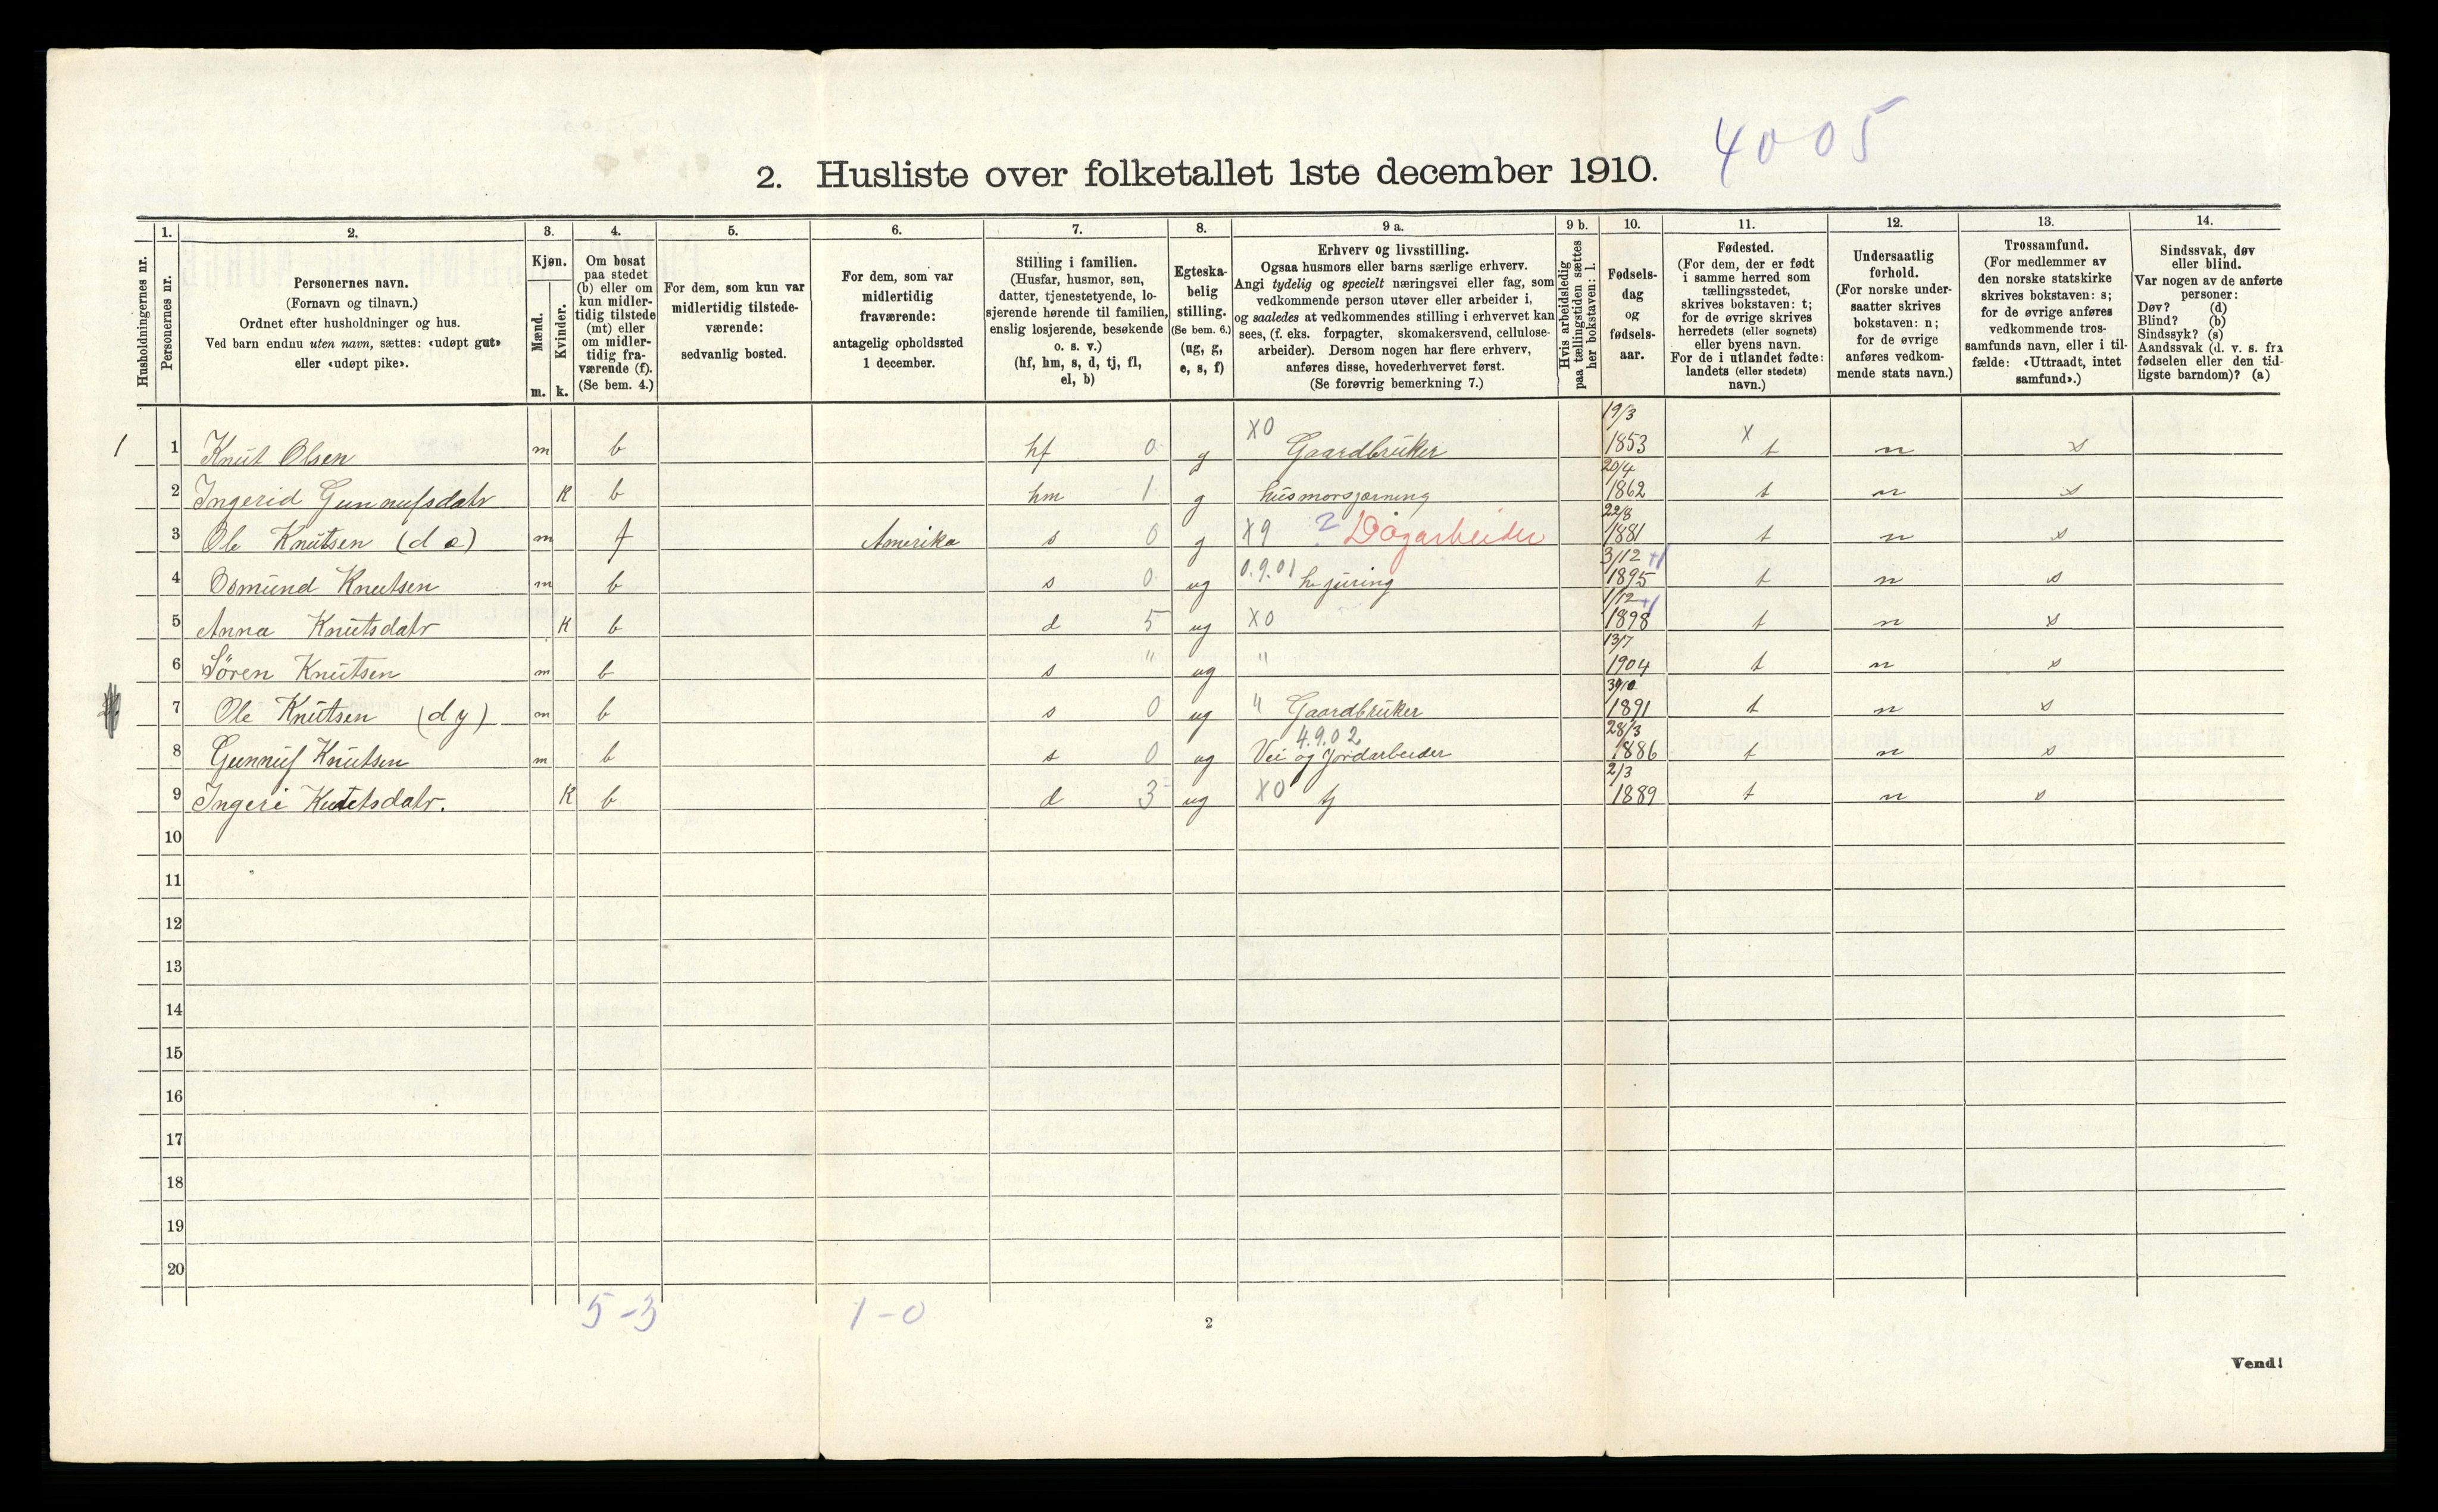 4005
2. Husliste over folketallet 1ste december 1910.
Husholdningernes nr.
1. Personernes nr.
2. Personernes navn.
(Fornavn og tilnavn.)
Ordnet efter husholdninger og hus.
Ved barn endnu uten navn, sættes: «udøpt gut»
eller «udøpt pike».
3. Kjøn.
Mænd. m.
Kvinder. k.
4. Om bosat
paa stedet
(b) eller om
kun midler-
tidig tilstede
(mt) eller
om midler-
tidig fra-
værende (f).
(Se bem. 4.)
5. For dem, som kun var
midlertidig tilstede-
værende:
sedvanlig bosted.
6. For dem, som var
midlertidig
fraværende:
antagelig opholdssted
1 december.
7. Stilling i familien.
(Husfar, husmor, søn,
datter, tjenestetyende, lo-
sjerende hørende til familien,
enslig losjerende, besøkende
o. s. v.)
(hf, hm, s, d, tj, fl,
el, b)
8. Egteska-
belig
stilling.
(Se bem. 6.)
(ug, g,
e, s, f)
9 a. Erhverv og livsstilling.
Ogsaa husmors eller barns særlige erhverv.
Angi tydelig og specielt næringsvei eller fag, som
vedkommende person utøver eller arbeider i,
og saaledes at vedkommendes stilling i erhvervet kan
sees, (f. eks. forpagter, skomakersvend, cellulose-
arbeider). Dersom nogen har flere erhverv,
anføres disse, hovederhvervet først.
(Se forøvrig bemerkning 7.)
9 b. Hvis arbeidsledig
paa tællingstiden sættes
her bokstaven: l.
10. Fødsels-
dag
og
fødsels-
aar.
11. Fødested.
(For dem, der er født
i samme herred som
tællingsstedet,
skrives bokstaven: t;
for de øvrige skrives
herredets (eller sognets)
eller byens navn.
For de i utlandet fødte:
landets (eller stedets)
navn.)
12. Undersaatlig
forhold.
(For norske under-
saatter skrives
bokstaven: n;
for de øvrige
anføres vedkom-
mende stats navn.)
13. Trossamfund.
(For medlemmer av
den norske statskirke
skrives bokstaven: s;
for de øvrige anføres
vedkommende tros-
samfunds navn, eller i til-
fælde: «Uttraadt, intet
samfund».)
14. Sindssvak, døv
eller blind.
Var nogen av de anførte
personer:
Døv? (d)
Blind? (b)
Sindssyk? (s)
Aandssvak (d. v. s. fra
fødselen eller den tid-
ligste barndom)? (a)
1 1 Knut Olsen m b hf 0 g X0 Gaardbruker 19/3 1853 X t n s
2 Ingerid Gunnufsdatr k b hm 1 g husmorsgjerning 20/4 1862 t n s
3 Ole Knutsen (d e) m f Amerika s 0 g X9 ? Dagarbeider 22/8 1881 t n s
4 Osmund Knutsen m b s 0 ug 0.9.01 hjuring 3/12 +1 1895 t n s
5 Anna Knutsdatr k b d 5 ug X0 1/12 +1 1898 t n s
6 Sören Knutsen m b s " ug " 13/7 1904 t n s
7 Ole Knutsen (d y) m b s 0 ug " Gaardbruker 1891 t n s
8 Gunnuf Knutsen m b s 0 ug 4.9.02 Vei og Jordarbeider 28/3 1886 t n s
9 Ingeri Knutsdatr. k b d 3 ug X0 tj 2/3 1889 t n s
10
11
12
13
14
15
16
17
18
19
20
5-3 1-0
2
Vend!